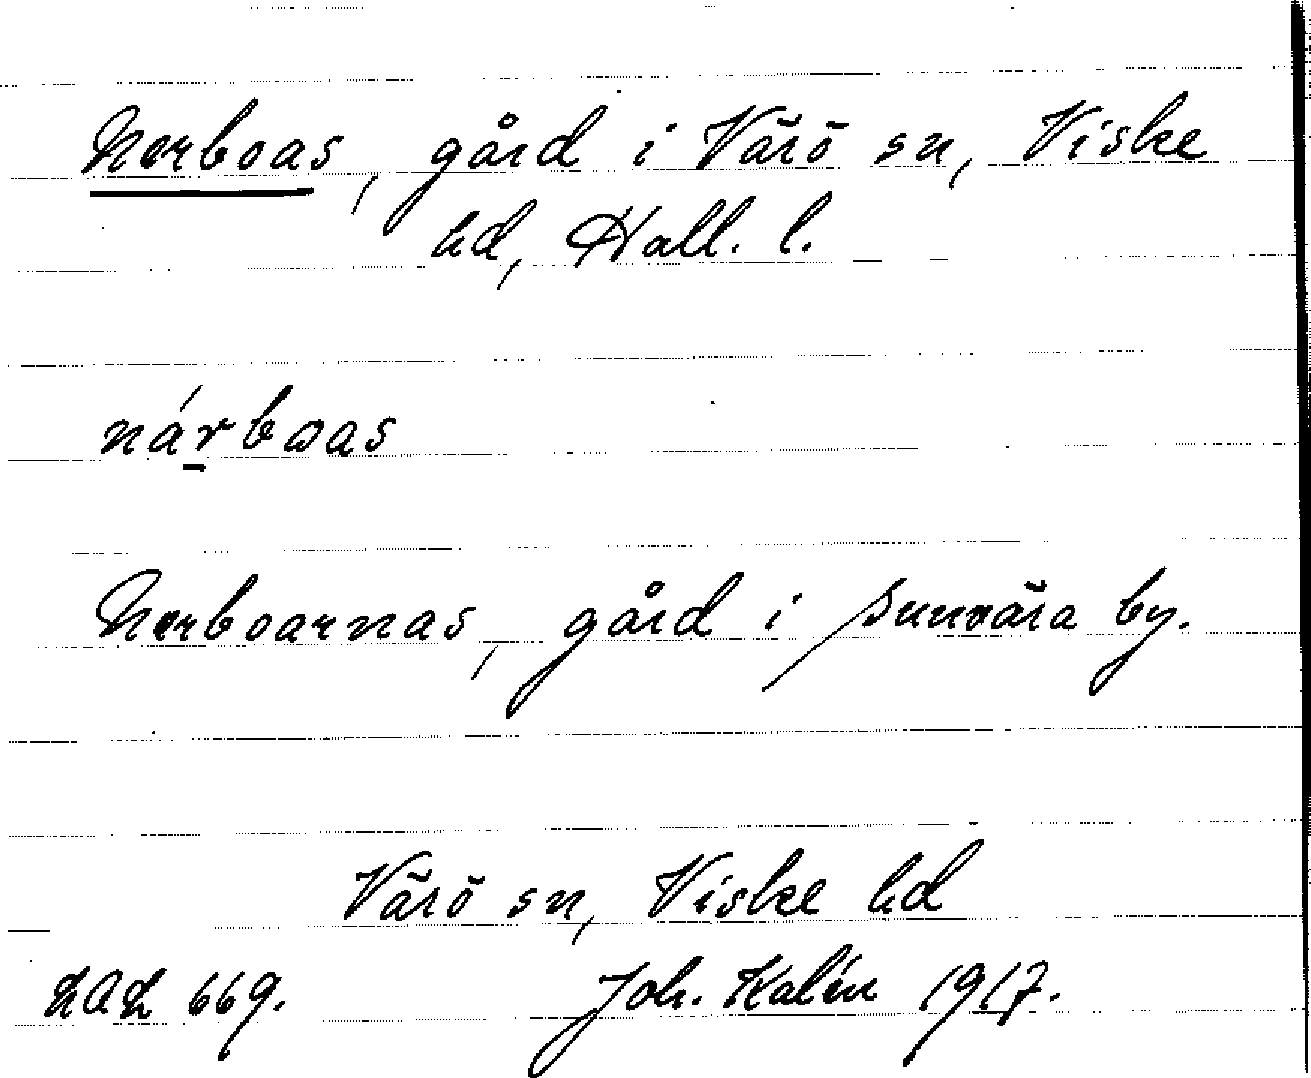 Nerboas, gård i Värö sn, Viske
hd, Hall. l.
nárbωas
Nerboarnas, gård i Sunvära by.
Värö sn, Viske hd
LAL 669. Joh. Kalén 1917.